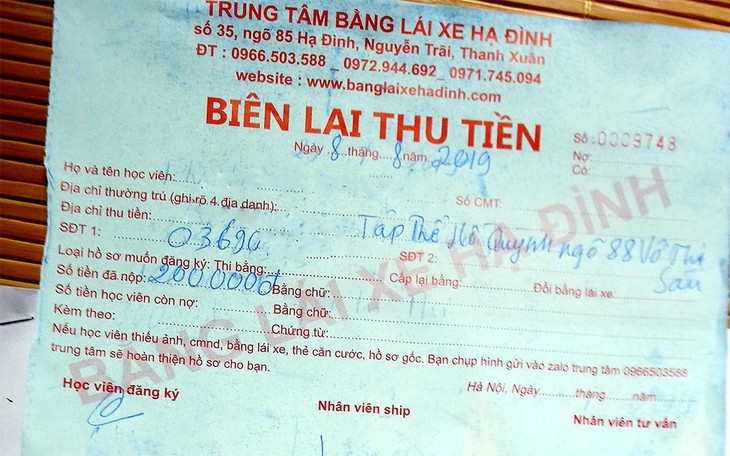 TRUNG TÂM BẰNG LÁI XE HẠ ĐÌNH
số 35, ngõ 85 Hạ Đình, Nguyễn Trãi, Thanh Xuân
ĐT : 0966.503.588 _ 0972.944.692 _ 0971.745.094
website : www.banglaixehadinh.com
BIÊN LAI THU TIỀN
Số: 0009748
Nợ:
Có:
Ngày 8 tháng 8 năm 2019
Họ và tên học viên:
Địa chỉ thường trú (ghi rõ 4 địa danh): Số CMT:
Địa chỉ thu tiền: Tập Thể Hồ Quỳnh ngõ 88 Võ Thị Sáu
SĐT 1: 03690 SĐT 2:
Loại hồ sơ muốn đăng ký: Thi bằng: Cấp lại bằng: Đổi bằng lái xe:
Số tiền đã nộp: 200.000đ Bằng chữ:
Số tiền học viên còn nợ: Bằng chữ:
Kèm theo: Chứng từ:
Nếu học viên thiếu ảnh, cmnd, bằng lái xe, thẻ căn cước, hồ sơ gốc. Bạn chụp hình gửi vào zalo trung tâm 0966503588
trung tâm sẽ hoàn thiện hồ sơ cho bạn.
Hà Nội, Ngày tháng năm
Học viên đăng ký Nhân viên ship Nhân viên tư vấn
BẰNG LÁI XE HẠ ĐÌNH